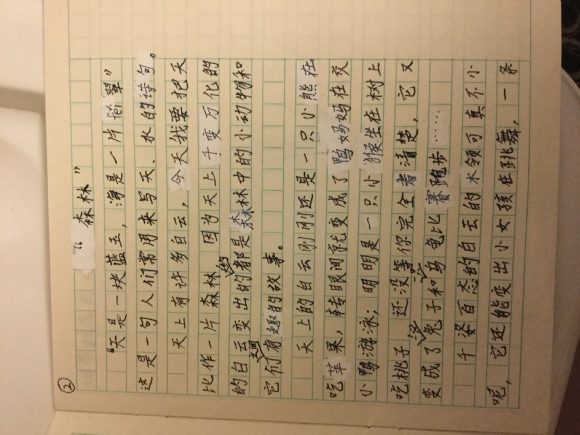 ②
"森林"
"天是一块蓝玉，海是一片翡翠"
这是一句人们常用来写天、水的诗句。
天上有许多白云，今天我要把天
比作一片森林，因为天上千变万化的
的白云变出的都是森林中的小动物和
它们之间有趣的故事。
天上的白云刚刚还是一只小熊在
吃苹果，转眼间就变成了鸭妈妈在教
小鸭游泳；明明是一只小猴坐在树上
吃桃子，还没等你完全看清楚，它又
变成了兔子和乌龟比赛跑步……
千姿百态的白云的本领可真不小
呢，它还能变出小女孩在跳舞，一条